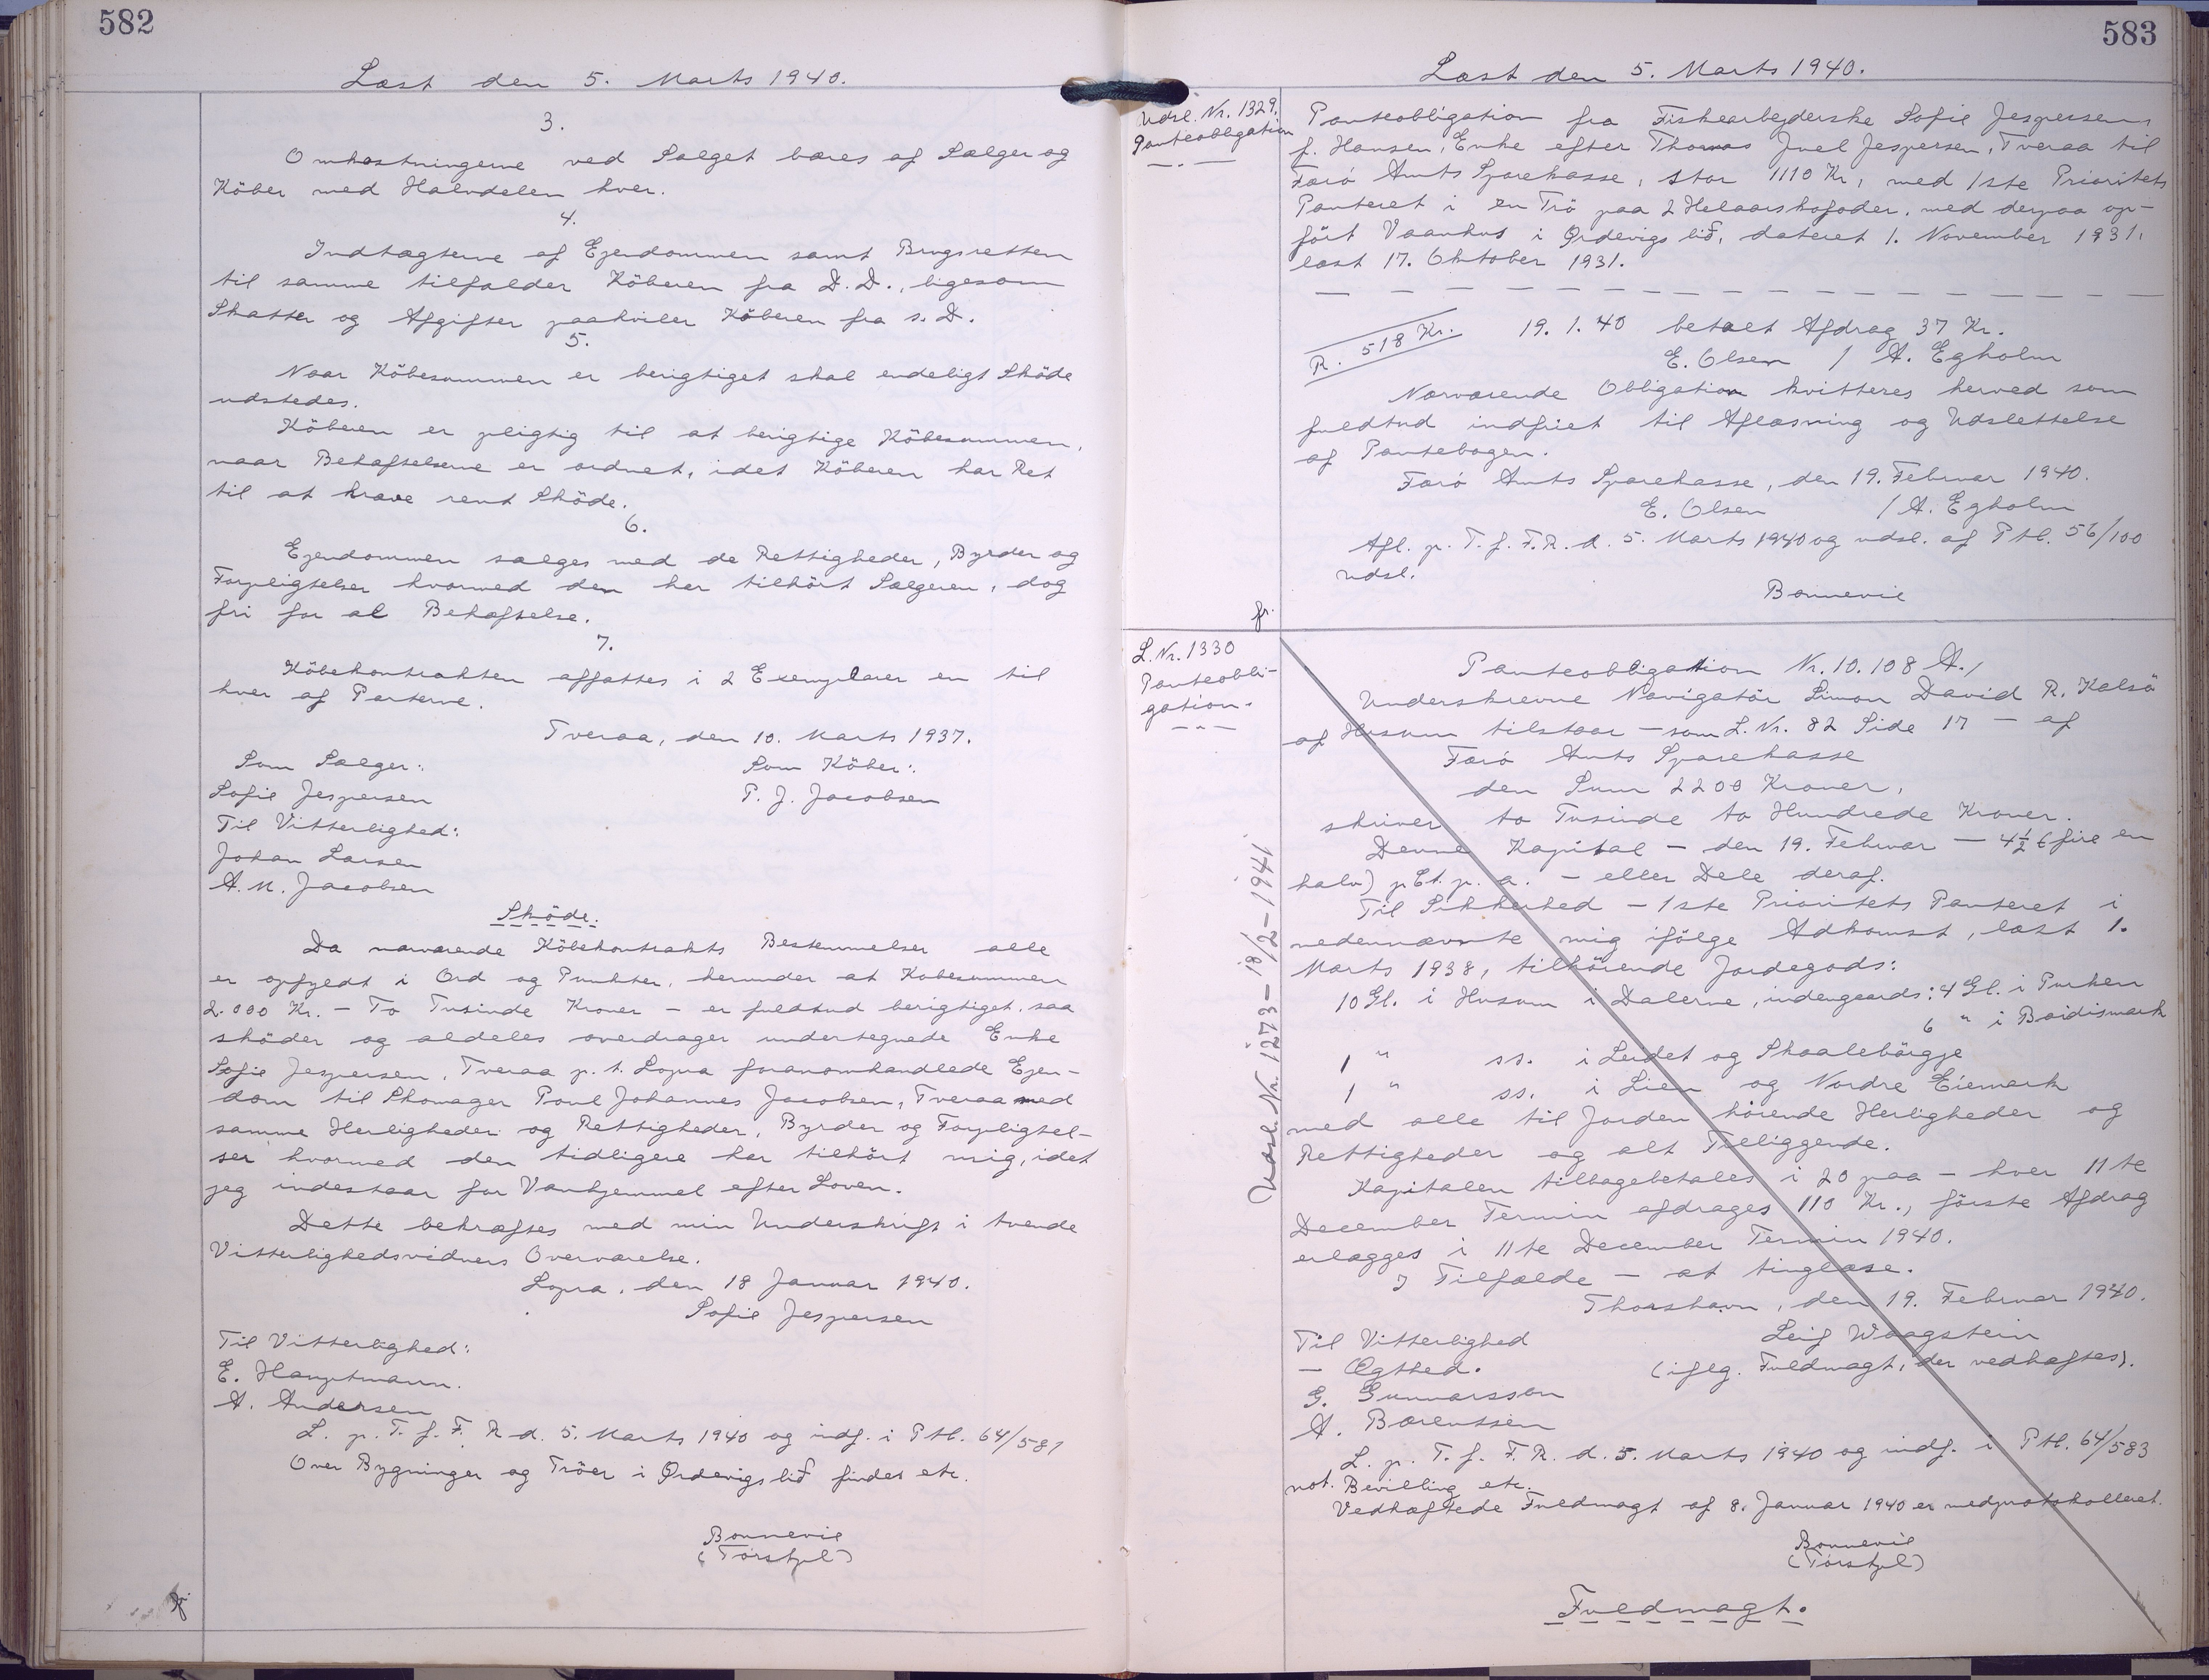 582
Læst den 5. Marts 1940.
3.
Omkostningerne ved Salget bæres af Sælger og
Köber med Halvdelen hver.
4.
Indtægterne af Ejendommen samt Brugsretten
til samme tilfalder Köberen fra D.D., ligesom
Skatter og Afgifter paahviler Köberen fra s. D.
5.
Naar Köbesummen er berigtiget skal endeligt Sköde
udstedes.
Köberen er pligtig til at berigtige Köbesummen,
naar Behæftelserne er ordnet, idet Köberen har Ret
til at kræve rent Sköde.
6.
Ejendommen sælges med de Rettigheder, Byrder og
Forpligtelser hvormed den har tilhört Sælgeren, dog
fri for al Behæftelse.
7.
Köbekontrakten affattes i 2 Exemplarer en til
hver af Parterne.
Tveraa, den 10. Marts 1937.
Som Sælger: Som Köber:
Sofie Jespersen P. J. Jacobsen
Til Vitterlighed:
Johan Larsen
A. M. Jacobsen
Sköde.
Da nærværende Köbekontrakts Bestemmelser alle
er opfyldt i Ord og Punkter, herunder at Köbesummen
2.000 Kr. - To Tusinde Kroner - er fuldtud berigtiget, saa
sköder og aldeles overdrager undertegnede Enke
Sofie Jespersen, Tveraa p. t. Lopra foranomhandlede Ejen-
dom til Skomager Poul Johannes Jacobsen, Tveraa med
samme Herligheder og Rettigheder, Byrder og Forpligtel-
ser hvormed den tidligere har tilhört mig, idet
jeg indestaar for Vanhjemmel efter Loven.
Dette bekræftes med min Underskrift i tvende
Vitterlighedsvidners Overværelse.
Lopra, den 18 Januar 1940.
Sofie Jespersen
Til Vitterlighed:
E. Hauptmann.
A. Andersen
L. p. T. f. F. R d. 5. Marts 1940 og indf. i Ptb. 64/581
Over Bygninger og Tröer i Ørdevigs lið findes etc.
Bonnevie
583
Læst den 5. Marts 1940.
Udsl. Nr. 1329.
Panteobligation
Panteobligation fra Fiskearbejderske Sofie Jespersen,
f. Hansen, Enke efter Thomas Juel Jespersen, Tveraa til
Færö Amts Sparekasse, stor 1110 Kr, med 1ste Prioritets
Panteret i en Trö paa 2 Helaarskofoder, med derpaa op-
fört Vaanhus i Ørdevigs lið, dateret 1. November 1931,
læst 17. Oktober 1931.
R. 518 Kr. 19. 1. 40 betalt Afdrag 37 Kr.
E. Olsen / A. Egholm
Nærværende Obligation kvitteres herved som
fuldtud indfriet til Aflæsning og Udslettelse
af Pantebogen.
Færö Amts Sparekasse, den 19. Februar 1940.
E. Olsen / A. Egholm
Afl. p. T. f. F. R. d. 5. Marts 1940 og udsl. af Ptb. 56/100
udsl.
Bonnevie
fr.
L. Nr. 1330
Panteobli-
gation.
Udsl. Nr. 1273 - 18/2 - 1941
Panteobligation Nr. 10.108 A.,
Underskrevne Navigatör Simon David R. Kalsö
af Husum tilstaar - som L. Nr. 82 Side 17 - af
Færö Amts Sparekasse
den Sum 2200 Kroner,
skriver to Tusinde to Hundrede Kroner.
Denne Kapital - den 19. Februar - 4½ (fire en
halv) pCt. p. a. - eller Dele deraf.
Til Sikkerhed - 1ste Prioritets Panteret i
nedennævnte mig ifölge Adkomst, læst 1.
Marts 1938, tilhörende Jordegods:
10 Gl. i Husum i Dalerne, indengaards: 4 Gl. i Purken
6 " i Boidismark
1 " ss. i Leidet og Skaalebörgje
1 " ss. i Lien og Nordre Eiemark
med alle til Jorden hörende Herligheder og
Rettigheder og alt Tilliggende.
Kapitalen tilbagebetales i 20 paa - hver 11te
December Termin afdrages 110 Kr., förste Afdrag
erlægges i 11te December Termin 1940.
I Tilfælde - at tinglæse.
Thorshavn, den 19. Februar 1940.
Til Vitterlighed Leif Waagstein
- Ægthed. (iflg. Fuldmagt, der vedhæftes).
G. Gunnarsson
A. Bærentsen
L. p. T. f. F. R. d. 5. Marts 1940 og indf. i Ptb. 64/583
not. Bevilling etc.
Vedhæftede Fuldmagt af 8. Januar 1940 er medprotokolleret.
Bonnevie
Fuldmagt.